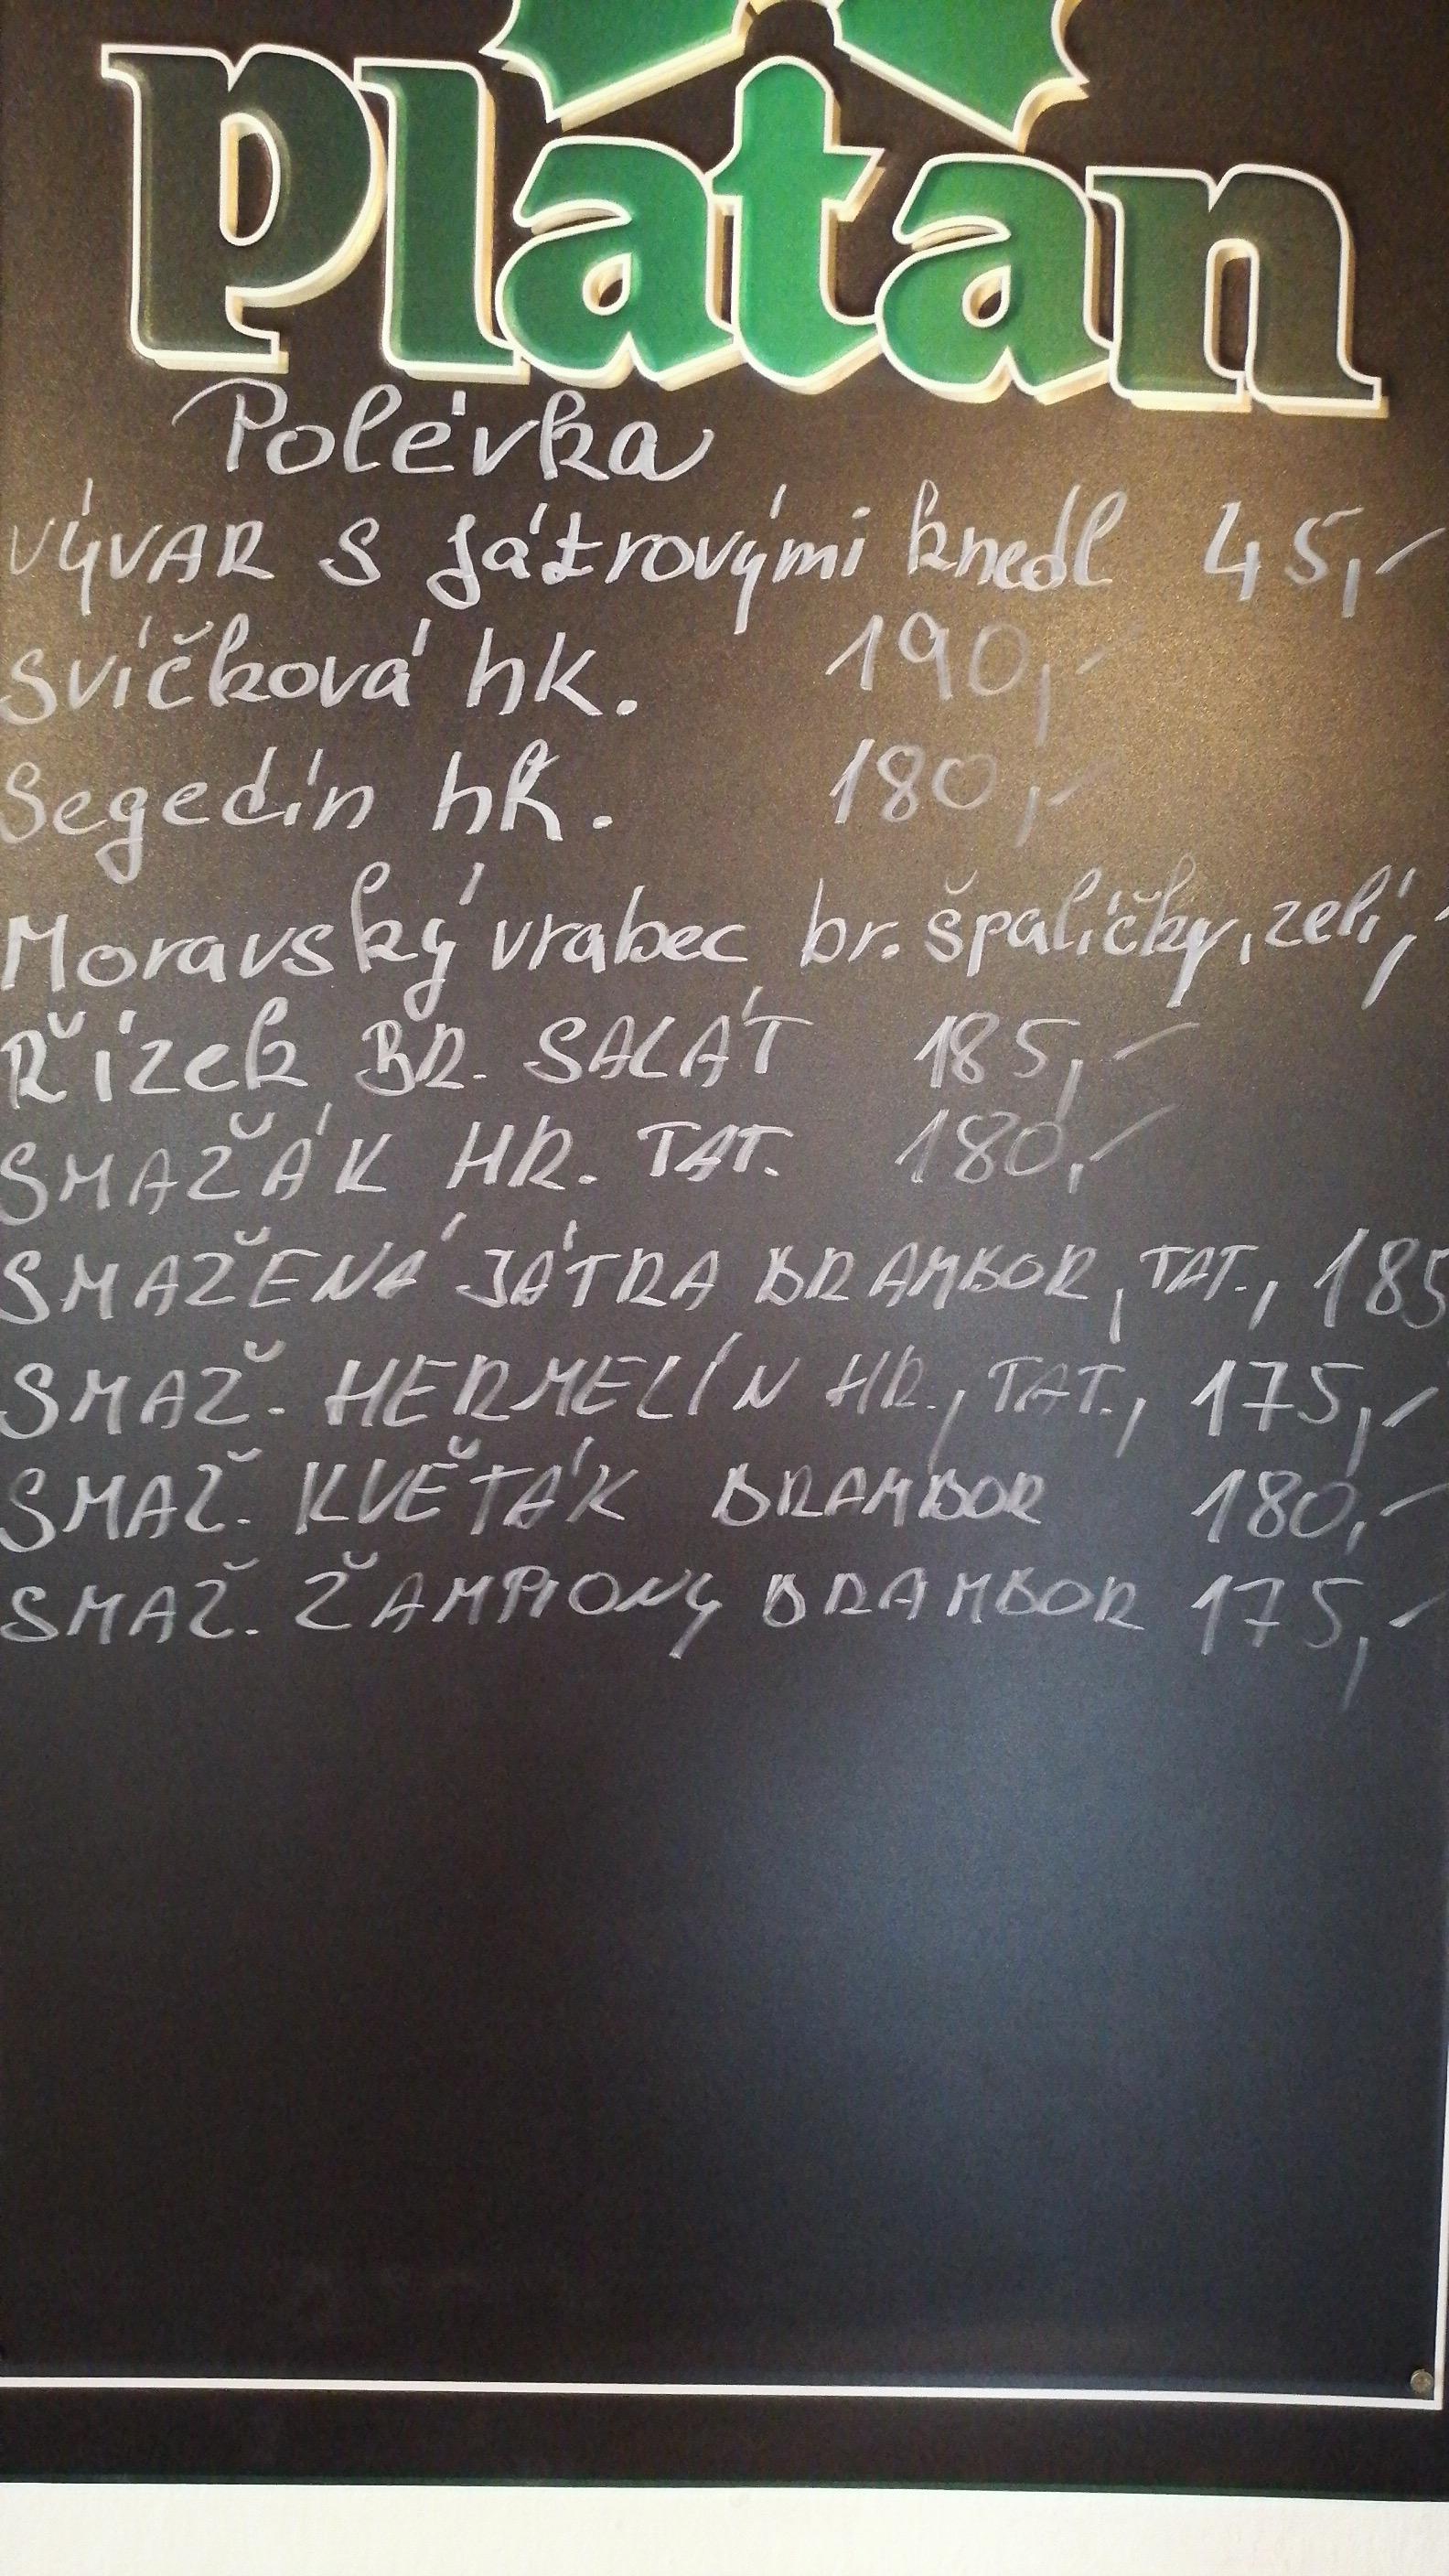 Platan
Polévka
VÝVAR s játrovými knedl 45,-
Svíčková hk. 190,-
Segedín hk. 180,-
Moravský vrabec br. špalíčky, zelí,
Řízek BR. SALÁT 185,-
SMAŽÁK HR. TAT. 180,-
SMAŽENÁ JÁTRA BRAMBOR, TAT., 185
SMAŽ. HERMELÍN HR., TAT., 175,-
SMAŽ. KVĚTÁK BRAMBOR 180,-
SMAŽ. ŽAMPIONY BRAMBOR 175,-